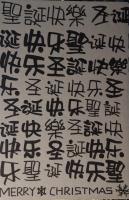 聖誕快樂圣
诞快乐聖诞快
快乐圣诞快樂
乐圣诞快乐圣
圣诞快樂聖诞
诞快樂圣诞快
快乐聖诞快乐
樂圣诞快乐聖
MERRY CHRISTMAS